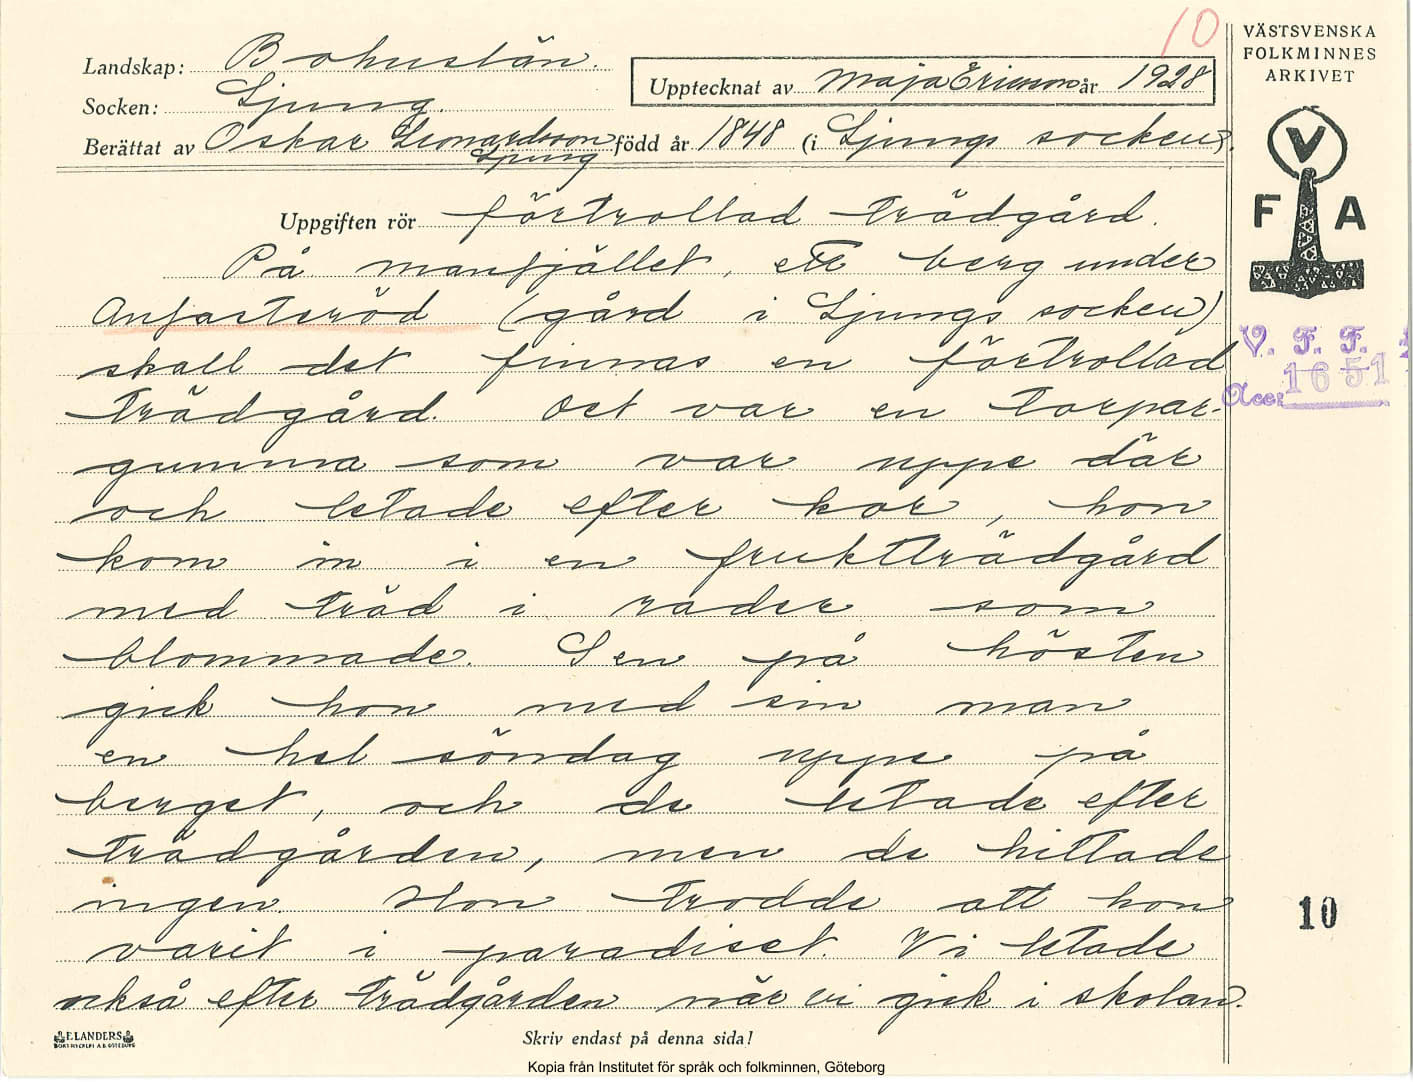 10
VÄSTSVENSKA
FOLKMINNES
ARKIVET
Landskap: Bohuslän.
Upptecknat av Maja Ericson år 1928
Socken: Ljung.
Berättat av Oskar Leonardsson född år 1848 (i Ljungs socken).
Ljung
V
F A
Uppgiften rör förtrollad trädgård.
På manfjället, ett berg under
Anfasteröd (gård i Ljungs socken)
skall det finnas en förtrollad
V. F. F.
Acc: 1651
trädgård. Det var en torpar-
gumma som var uppe där
och letade efter kor, hon
kom in i en fruktträdgård
med träd i rader som
blommade. Sen på hösten
gick hon med sin man
en hel söndag uppe på
berget, och de letade efter
trädgården, men de hittade
ingen. Hon trodde att hon
10
varit i paradiset. Vi letade
också efter trädgården när vi gick i skolan.
ELANDERS
BOKTRYCKERI A.B. GÖTEBORG
Skriv endast på denna sida!
Kopia från Institutet för språk och folkminnen, Göteborg